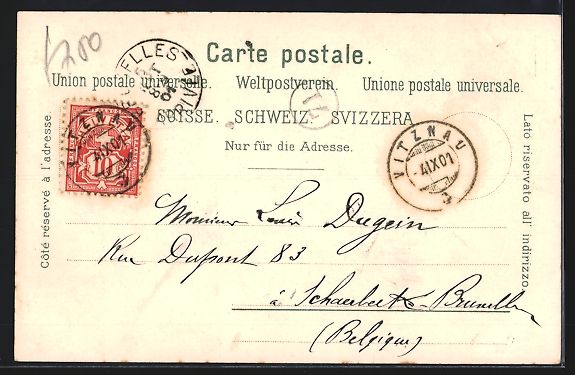 1200
Carte postale.
Union postale universelle. Weltpostverein. Unione postale universale.
SUISSE. SCHWEIZ. SVIZZERA
Nur für die Adresse.
Côté réservé à l'adresse.
Lato riservato all' indirizzo.
VITZNAU
10
VITZNAU
Monsieur Louis Dugein
Rue Dupont 83
à Schaerbeek-Bruxelles
(Belgique)